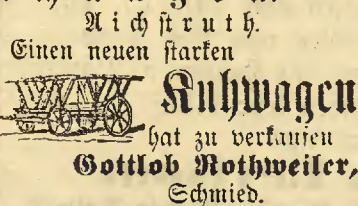 Aichstruth.
Einen neuen starken
Kuhwagen
hat zu verkaufen
Gottlob Rothweiler,
Schmied.